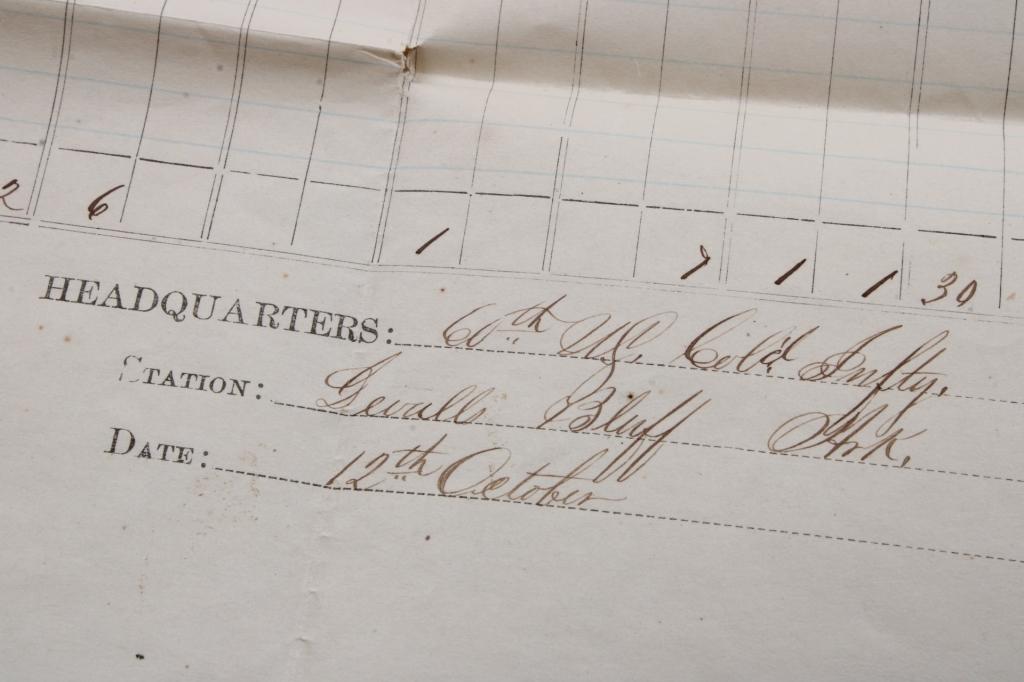 2 6 1 7 1 1 30
HEADQUARTERS: 60th U.S. Col'd Infty.
STATION: Devalls Bluff Ark.
DATE: 12th October